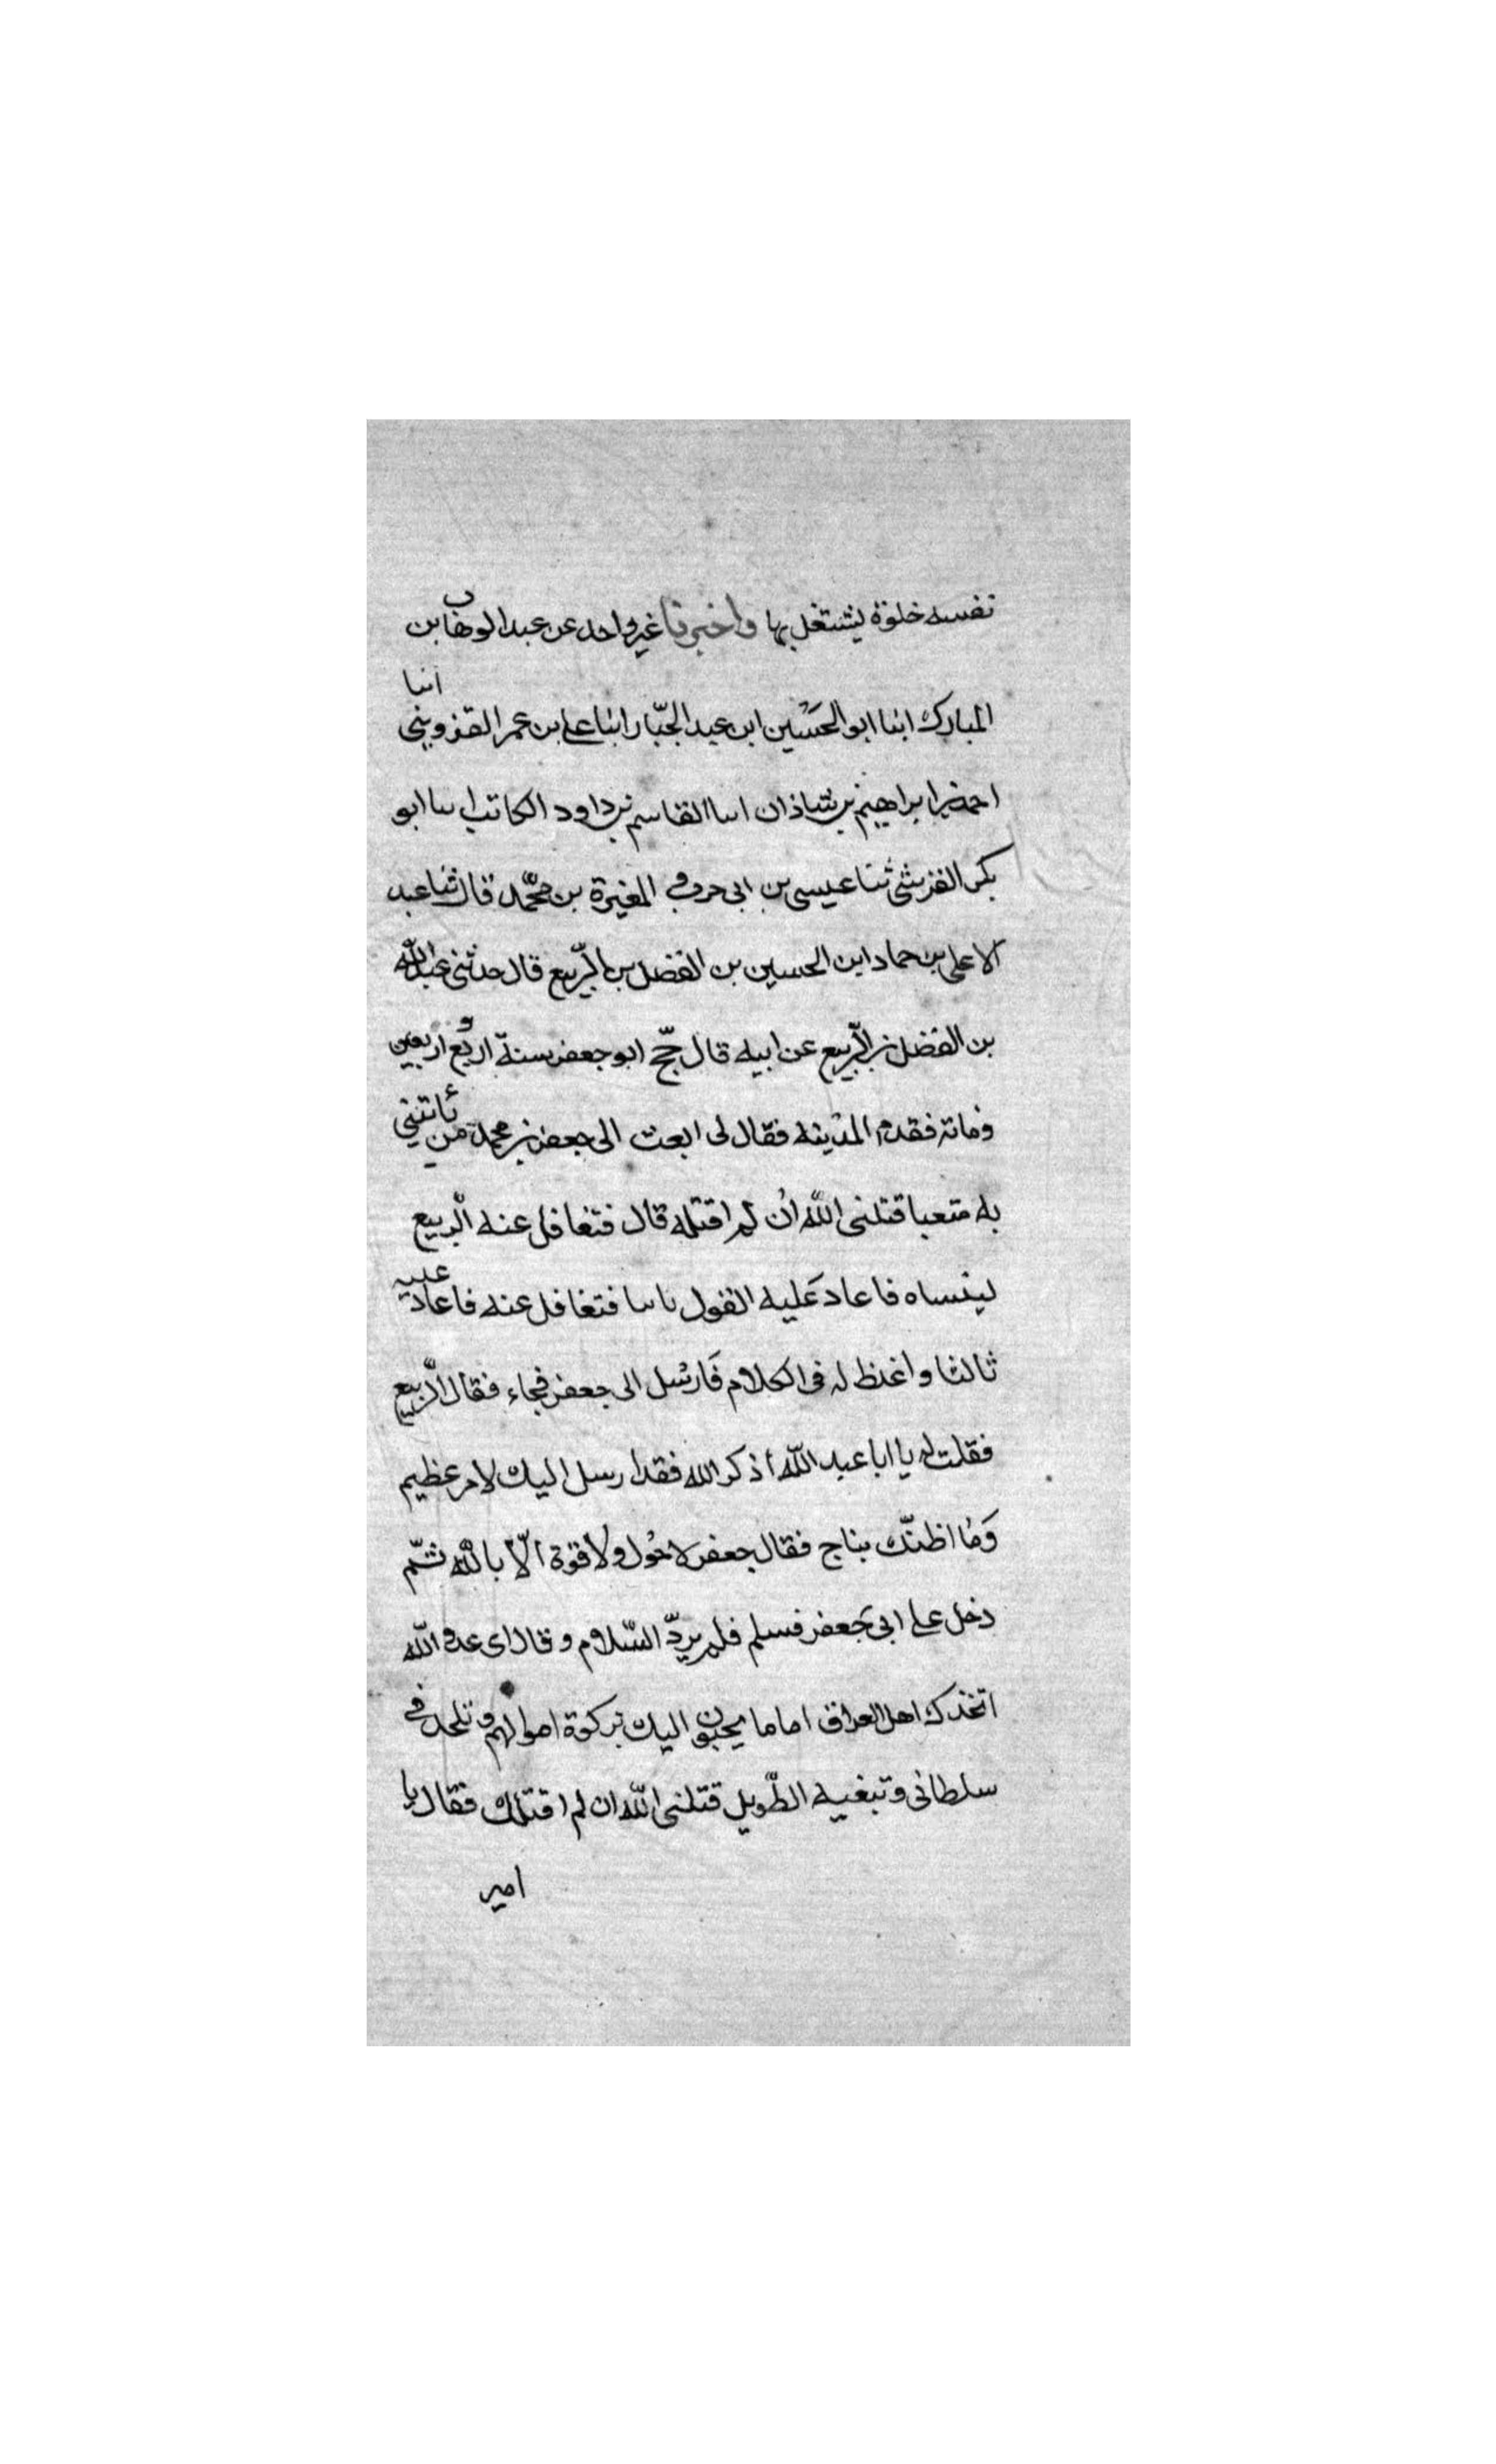 نفسه خلوة ليشتغل بها واخبرنا غير واحد عن عبد الوهاب بن
المبارك ابنا ابو الحسين ابن عبد الجبّار ابنا على بن عمر القزوينى انبا
احمد بن ابراهيم بن شاذان اسا القاسم بن داود الكاتب اسا ابو
بكر القرشى ثنا عيسى بن ابى حرب و المغيرة بن محمّد قال ثنا عبد
الاعلى بن حماد ابن الحسين بن الفضل بن الرّبيع قال حدثنى عبد الله
بن الفضل بن الرّبيع عن ابيه قال حجّ ابو جعفر سنة اربع و اربعين
ومائة فقدم المدينه فقال لى ابعث الى جعفر بن محمد من ياتينى
به متعبا قتلنى الله ان لم اقتله قال فتغافل عنه الربيع
لينساه فاعاد عَليه القول ناسا فتغافل عنه فاعاد عليه
ثالثا واغلظ له فى الكلام فَارسل الى جعفر فجاء فقال الرّبيع
فقلت له يا ابا عبد اللّه أذكر الله فقد ارسل اليك لامر عظيم
وَما اظنّك بناج فقال جعفر لا حول ولا قوة الّا بالله ثمّ
دخل على ابى جعفر فسلم فلم يردّ السّلام و قال اى عدو اللّه
اتخذك اهل العراق اماما يجبون اليك بزكوة اموالهم و تلحد فى
سلطانى و تبغيه الطّويل قتلنى اللّه ان لم اقتلك فقال يا
امير